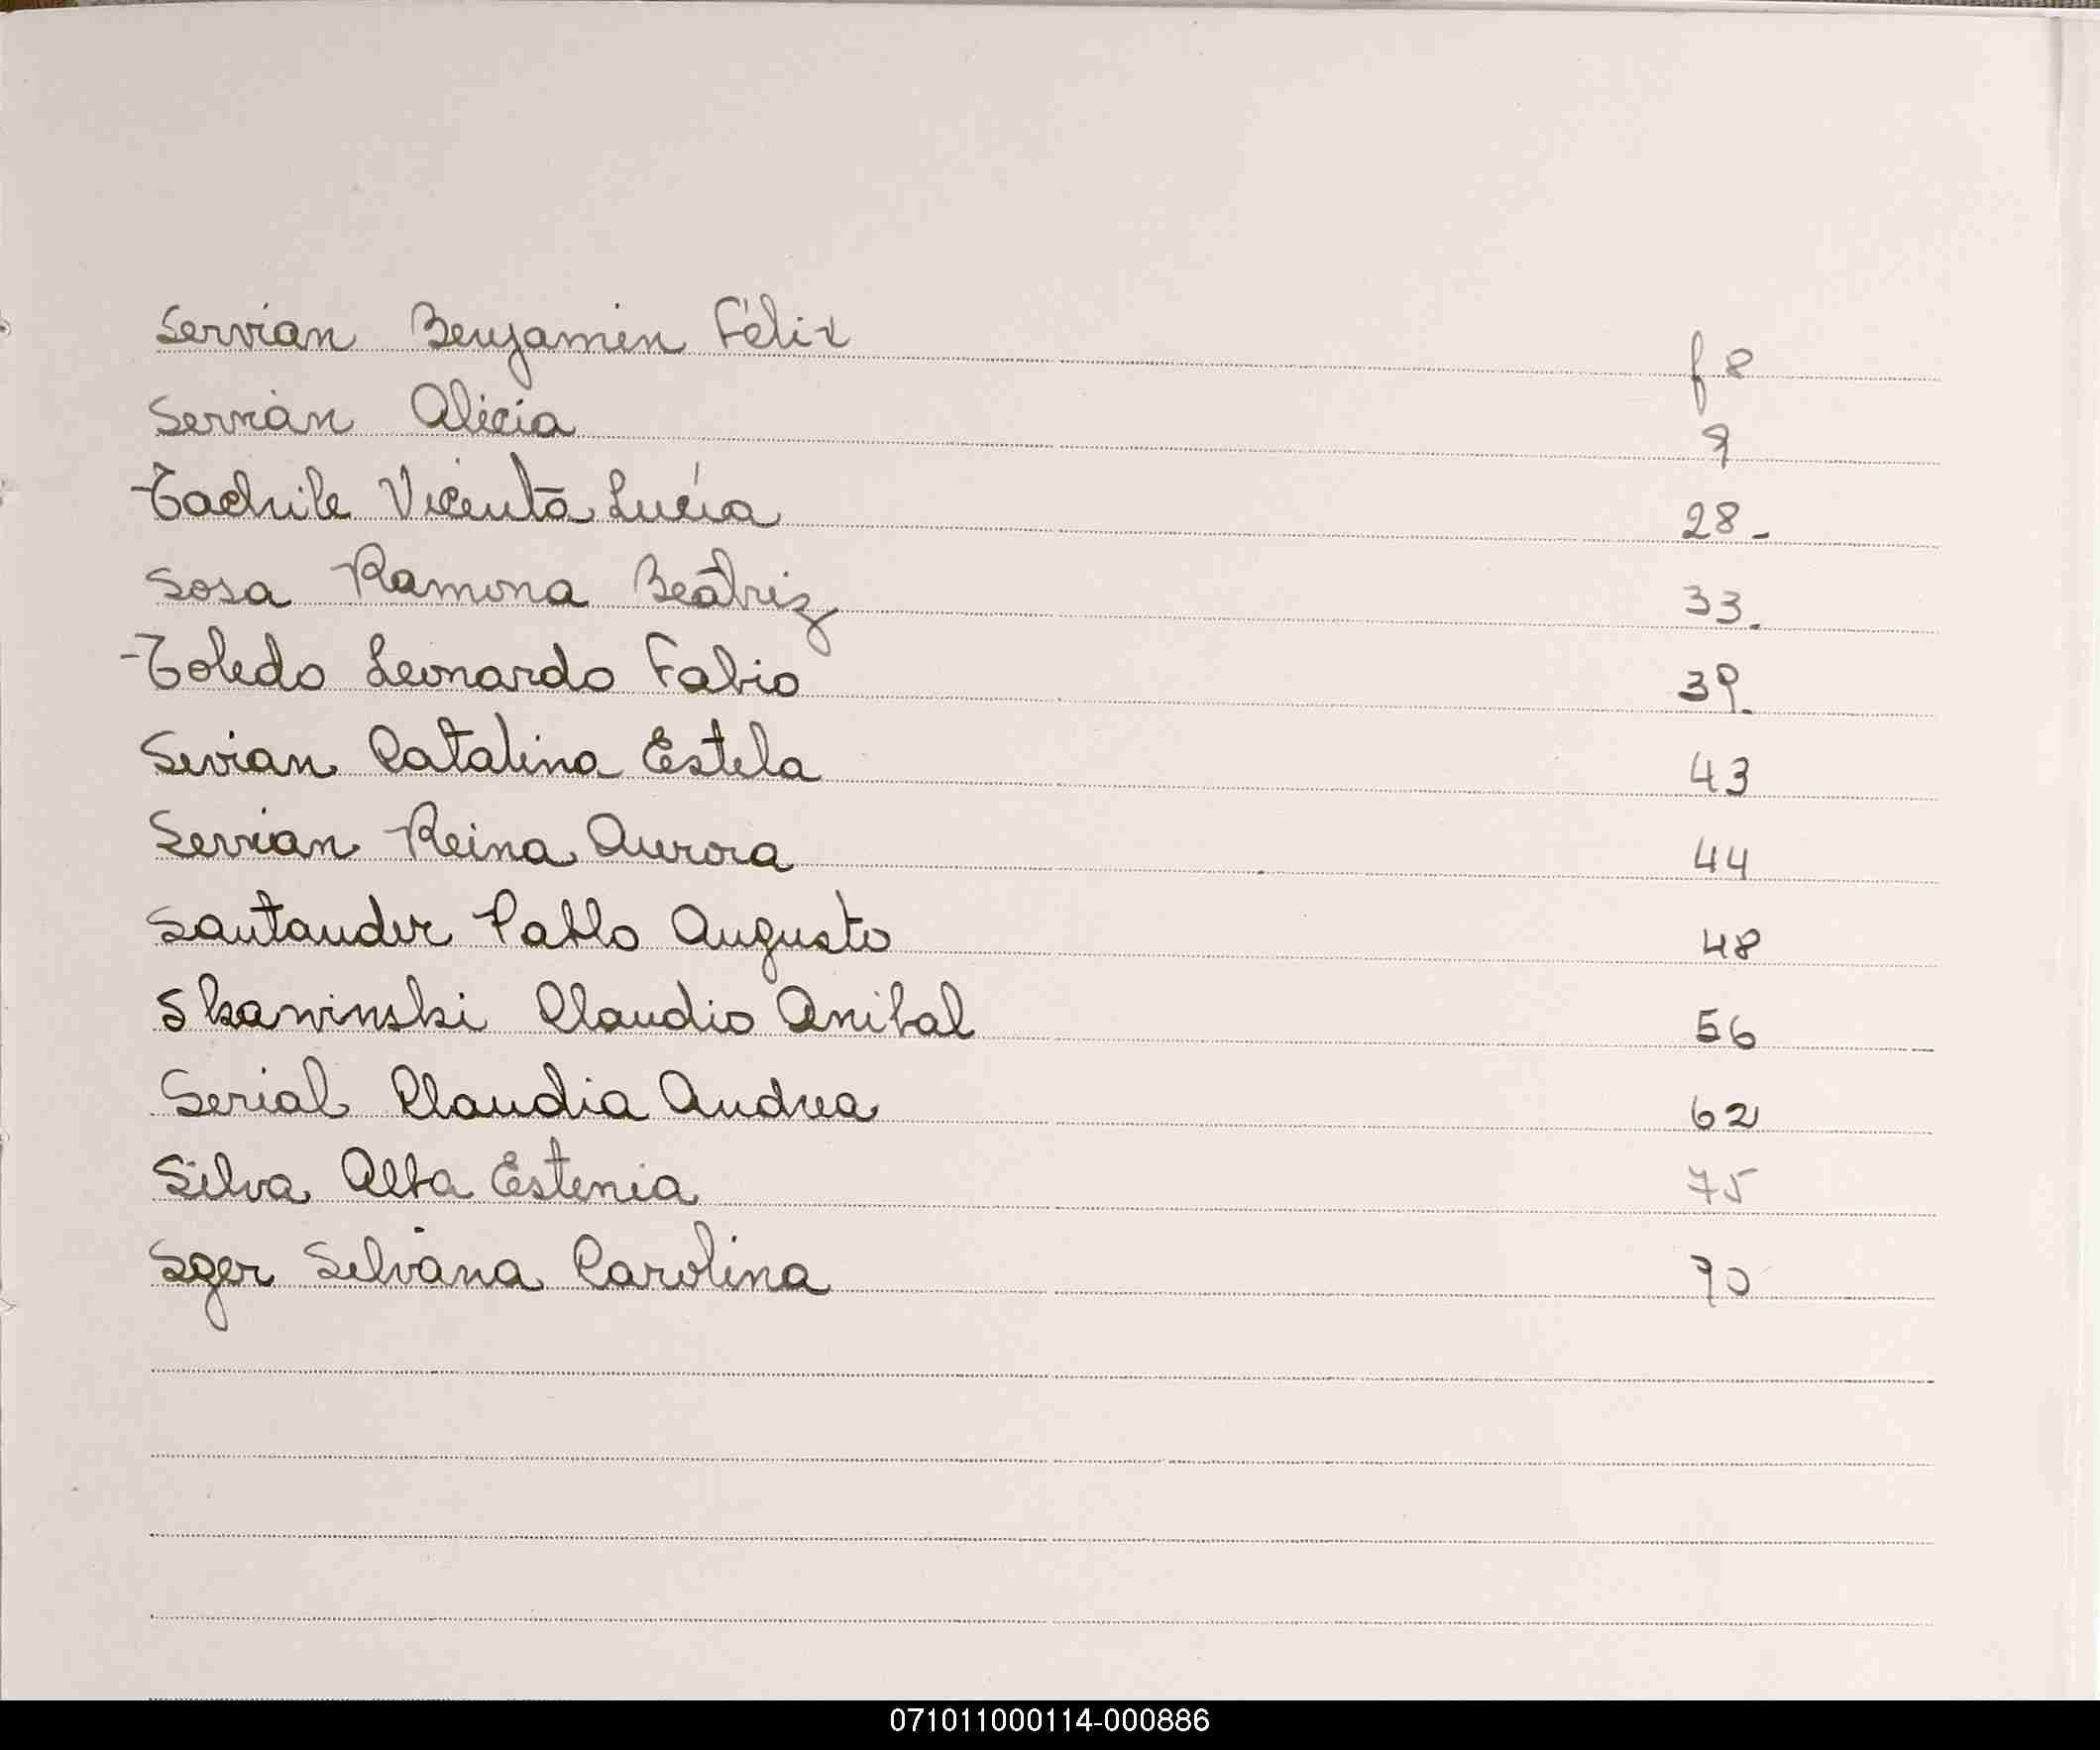 Servian Benjamin Félix f 8
Servián Alicia 9
Tachile Vicenta Lucía 28-
Sosa Ramona Beatriz 33.
Toledo Leonardo Fabio 39.
Sevian Catalina Estela 43
Servian Reina Aurora 44
Santander Pablo Augusto 48
Skawinski Claudio Anibal 56
Serial Claudia Andrea 62
Silva Alba Estenia 75
Sger Silvana Carolina 90
071011000114-000886